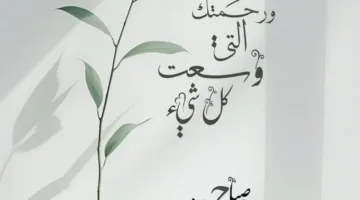 ورحمتك
التي
وسعت
كل شيء